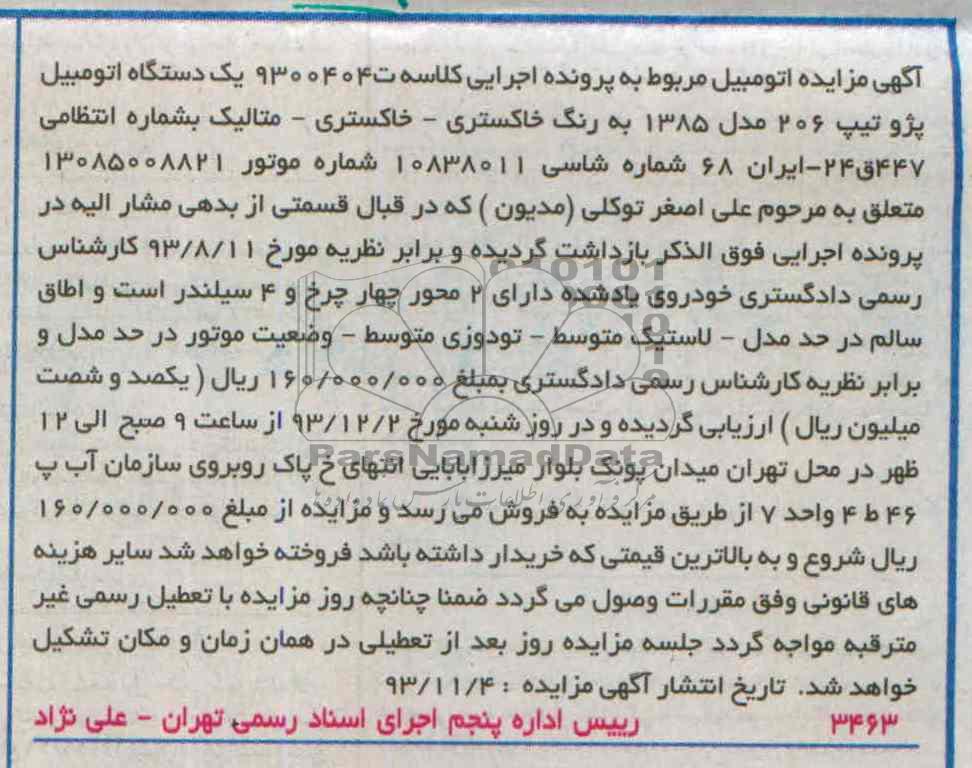 آگهی مزایده اتومبیل مربوط به پرونده اجرایی کلاسه ت۹۳۰۰۴۰۴ یک دستگاه اتومبیل
پژو تیپ ۲۰۶ مدل ۱۳۸۵ به رنگ خاکستری - خاکستری - متالیک بشماره انتظامی
۴۴۷ق۲۴-ایران ۶۸ شماره شاسی ۱۰۸۳۸۰۱۱ شماره موتور ۱۳۰۸۵۰۰۸۸۲۱
متعلق به مرحوم علی اصغر توکلی (مدیون ) که در قبال قسمتی از بدهی مشار الیه در
پرونده اجرایی فوق الذکر بازداشت گردیده و برابر نظریه مورخ ۹۳/۸/۱۱ کارشناس
رسمی دادگستری خودروی یادشده دارای ۲ محور چهار چرخ و ۴ سیلندر است و اطاق
سالم در حد مدل - لاستیک متوسط - تودوزی متوسط - وضعیت موتور در حد مدل و
برابر نظریه کارشناس رسمی دادگستری بمبلغ ۱۶۰/۰۰۰/۰۰۰ ریال ( یکصد و شصت
میلیون ریال ) ارزیابی گردیده و در روز شنبه مورخ ۹۳/۱۲/۲ از ساعت ۹ صبح الی ۱۲
ظهر در محل تهران میدان پونک بلوار میرزابابایی انتهای خ پاک روبروی سازمان آب پ
۴۶ ط ۴ واحد ۷ از طریق مزایده به فروش می رسد و مزایده از مبلغ ۱۶۰/۰۰۰/۰۰۰
ریال شروع و به بالاترین قیمتی که خریدار داشته باشد فروخته خواهد شد سایر هزینه
های قانونی وفق مقررات وصول می گردد ضمنا چنانچه روز مزایده با تعطیل رسمی غیر
مترقبه مواجه گردد جلسه مزایده روز بعد از تعطیلی در همان زمان و مکان تشکیل
خواهد شد. تاریخ انتشار آگهی مزایده : ۹۳/۱۱/۴
۳۴۶۳ رییس اداره پنجم اجرای اسناد رسمی تهران - علی نژاد
ParsNamadData